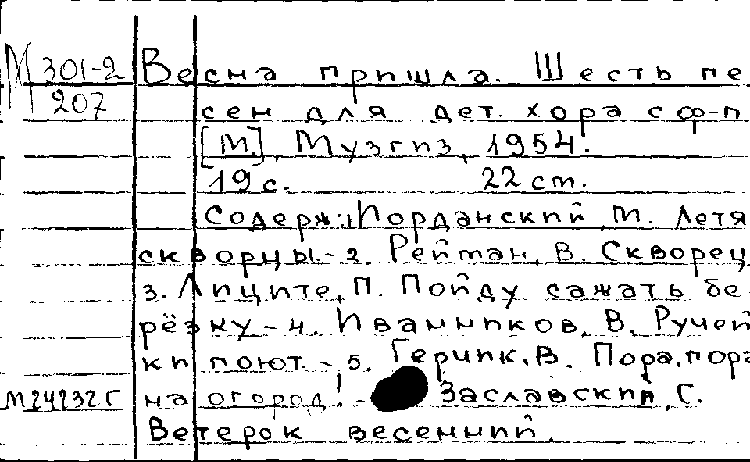 М 301-2
207
Весна пришла. Шесть пе
сен для дет. хора с ф-п.
[М.], Музгиз, 1954.
19 с. 22 cm.
Содерж.: Иорданский, М. Летя
скворцы.- 2. Рейтман, В. Скворец
3. Липците, П. Пойду сажать бе-
рёзку - 4. Иванников, В. Ручей
ки поют. - 5. Герчик, В. Пора, пора
на огород! - Заславский, Г.
Ветерок весенний.
М24232г